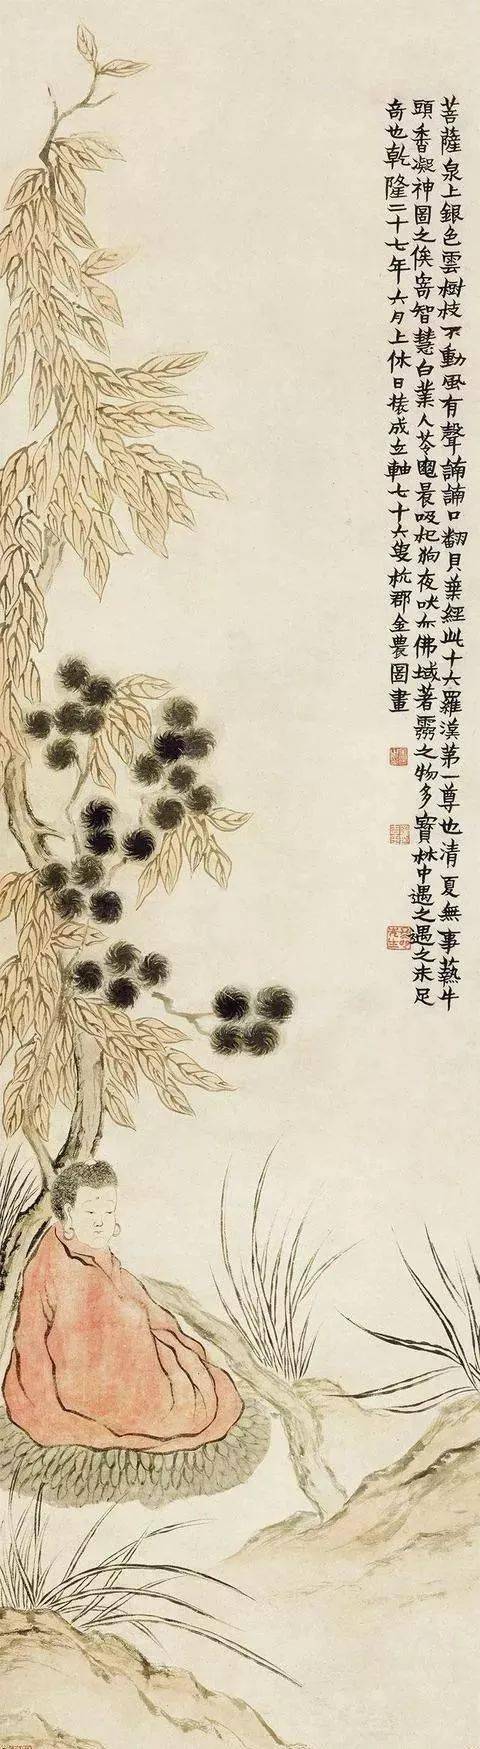 菩薩泉上銀色雲樹枝不動風有聲誦誦口翻貝葉經此十六羅漢第一尊也清夏無事爇牛
頭香凝神圖之俟寄智慧白業人苓龜晨吸杞狗夜吠亦佛域著靈之物多寶林中遇之遇之未足
奇也乾隆二十七年六月上休日裱成立軸七十六叟杭郡金農圖畫